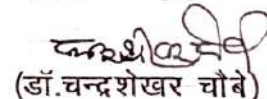 (डॉ.चन्द्रशेखर चौबे)